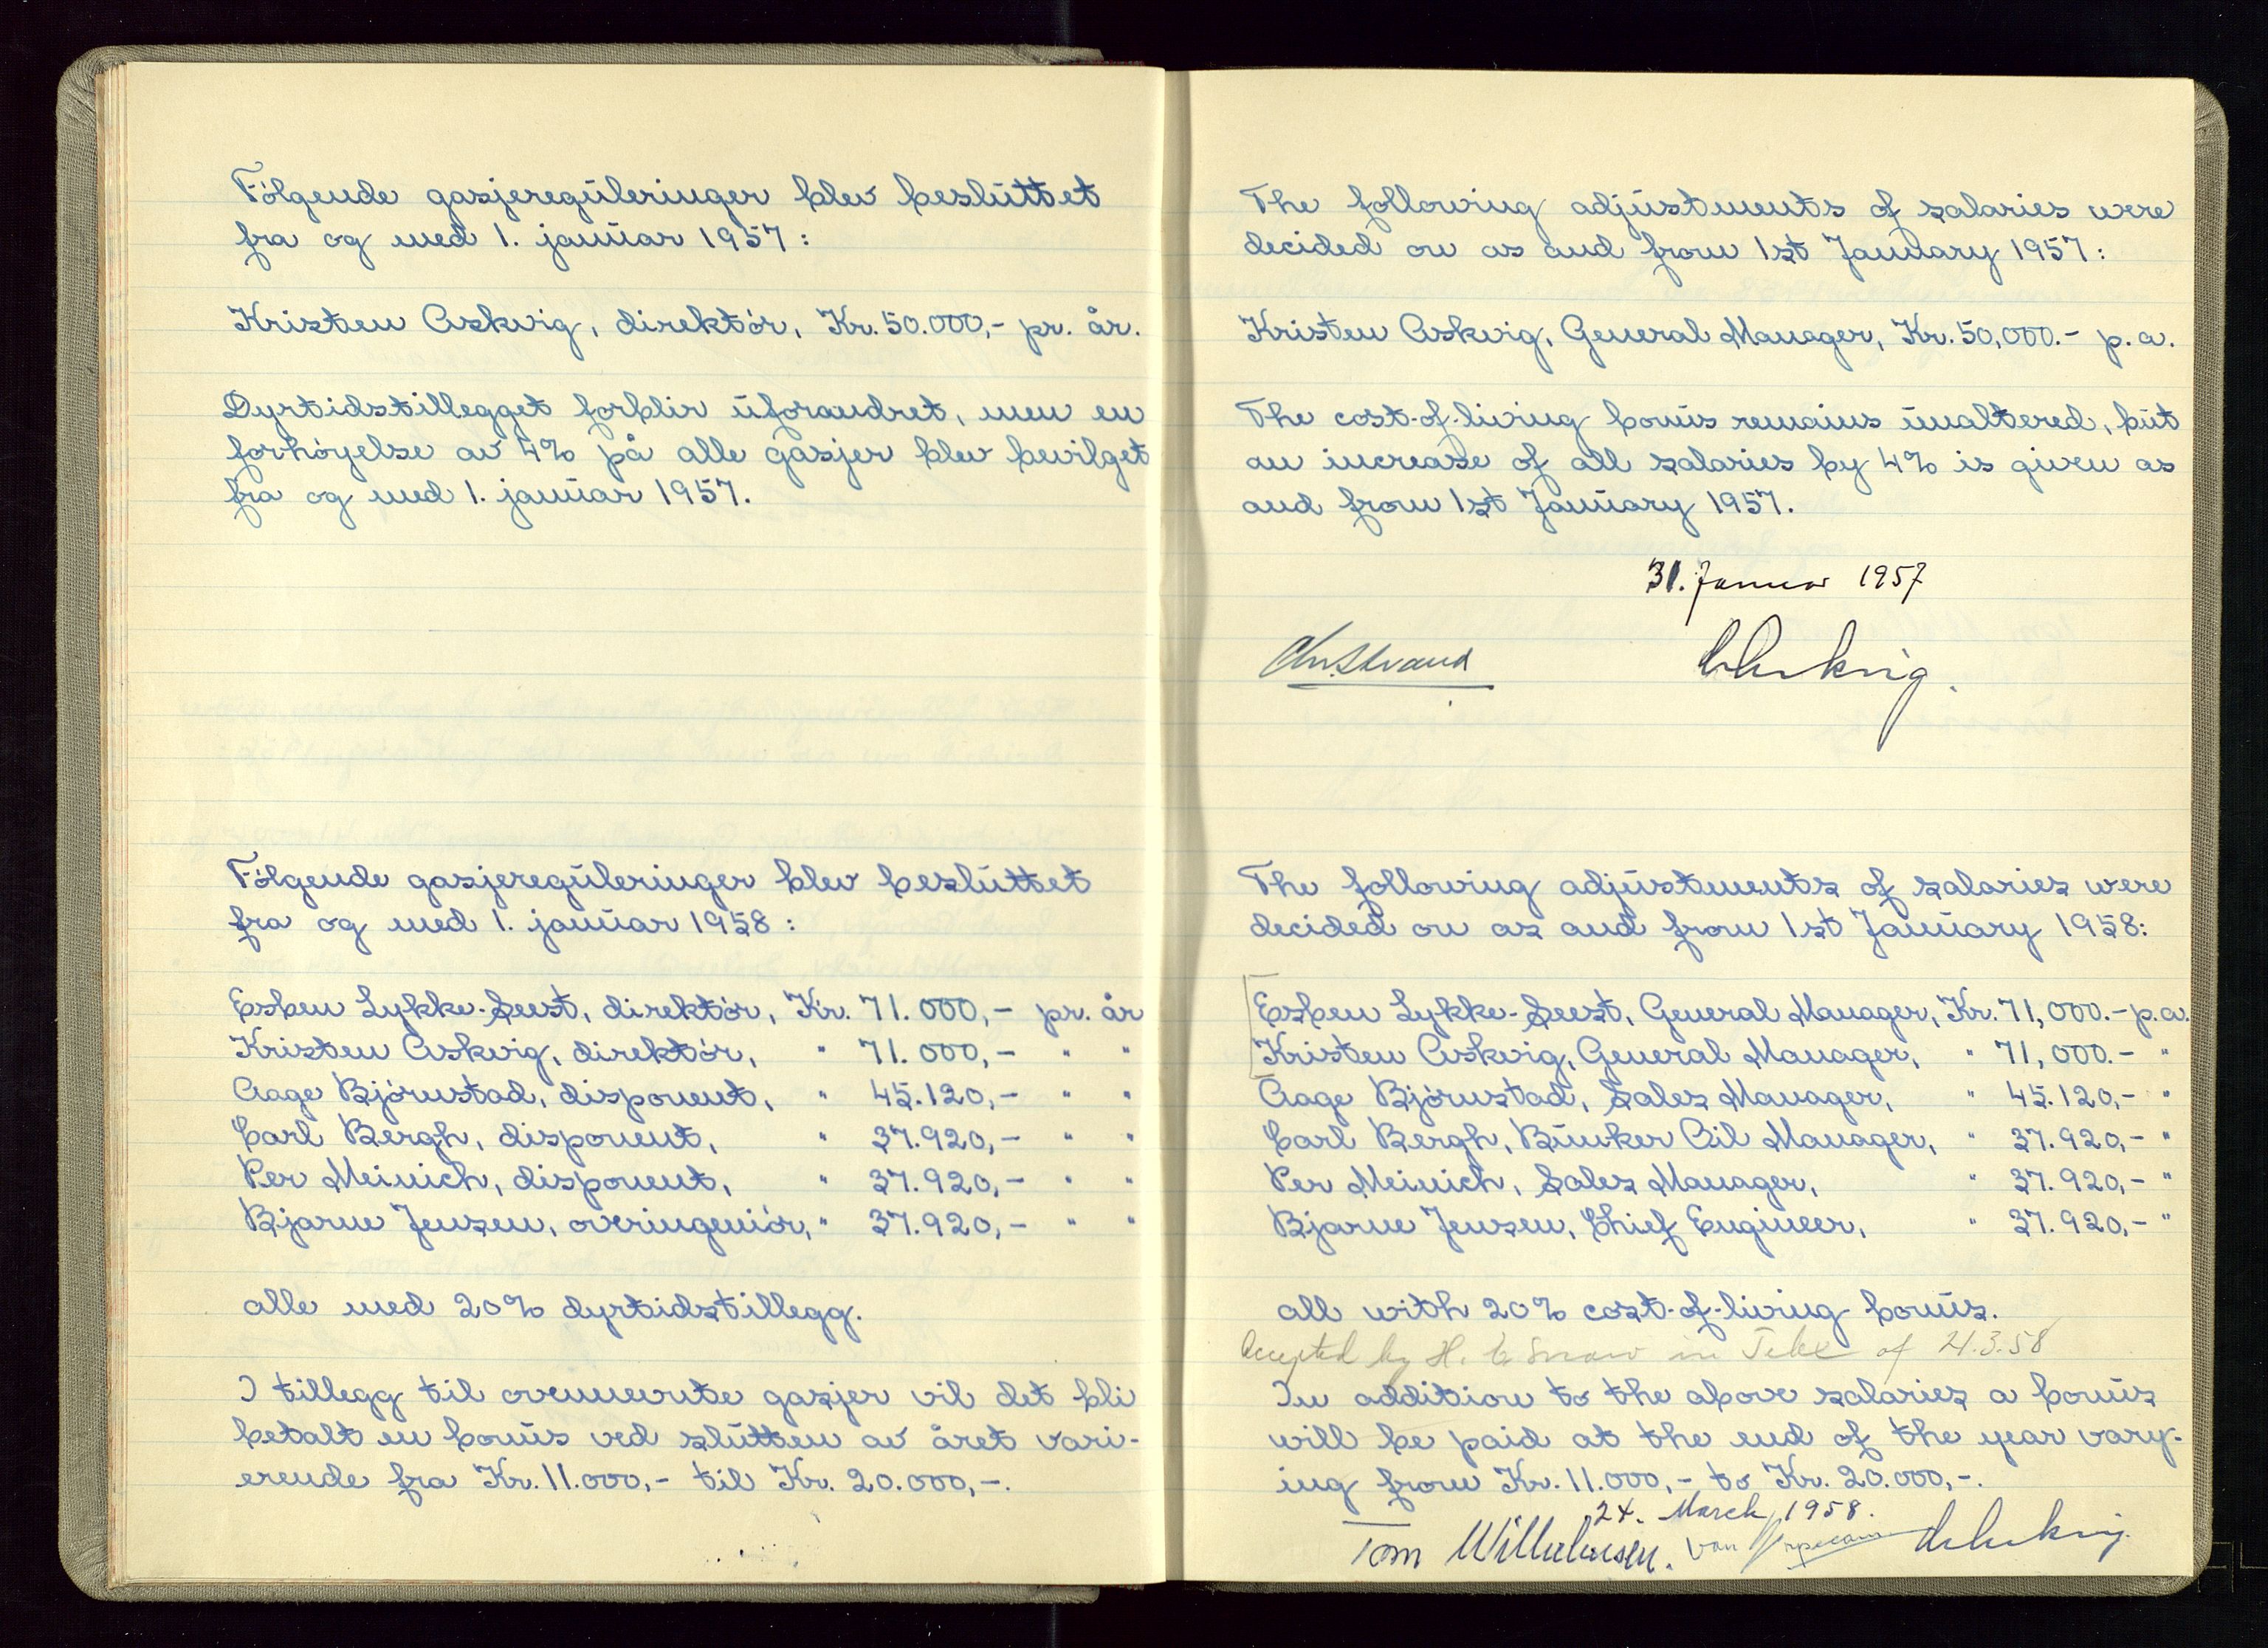 Følgende gasjereguleringer blev besluttet
fra og med 1. januar 1957:
Kristen Askvig, direktør, Kr. 50.000,- pr. år.
Dyrtidstillegget forblir uforandret, men en
forhøyelse av 4% på alle gasjer blev bevilget
fra og med 1. januar 1957.
Følgende gasjereguleringer blev besluttet
fra og med 1. januar 1958:
Esben Lykke-Seest, direktør, Kr. 71.000,- pr. år
Kristen Askvig, direktør, " 71.000,- " "
Aage Bjørnstad, disponent, " 45.120,- " "
Carl Bergh, disponent, " 37.920,- " "
Per Meinich, disponent, " 37.920,- " "
Bjarne Jensen, overingeniør, " 37.920,- " "
alle med 20% dyrtidstillegg.
I tillegg til ovennevnte gasjer vil det bli
betalt en bonus ved slutten av året vari-
erende fra Kr. 11.000,- til Kr. 20.000,-.
The following adjustments of salaries were
decided on as and from 1st January 1957:
Kristen Askvig, General Manager, Kr. 50,000.- p.a.
The cost-of-living bonus remains unaltered, but
an increase of all salaries by 4% is given as
and from 1st January 1957.
31. Januar 1957
Chr. Strand Askvig.
The following adjustments of salaries were
decided on as and from 1st January 1958:
Esben Lykke-Seest, General Manager, Kr. 71,000.- p.a.
Kristen Askvig, General Manager, " 71,000.- "
Aage Bjørnstad, Sales Manager, " 45.120,- "
Carl Bergh, Bunker Oil Manager, " 37.920,- "
Per Meinich, Sales Manager, " 37.920,- "
Bjarne Jensen, Chief Engineer, " 37.920,- "
all with 20% cost-of-living bonus.
Accepted by H. C Snow in Telex of 21.3.58
In addition to the above salaries a bonus
will be paid at the end of the year vary-
ing from Kr. 11.000,- to Kr. 20.000,-.
24. March 1958.
Tom Wilhelmsen. van Askvig.